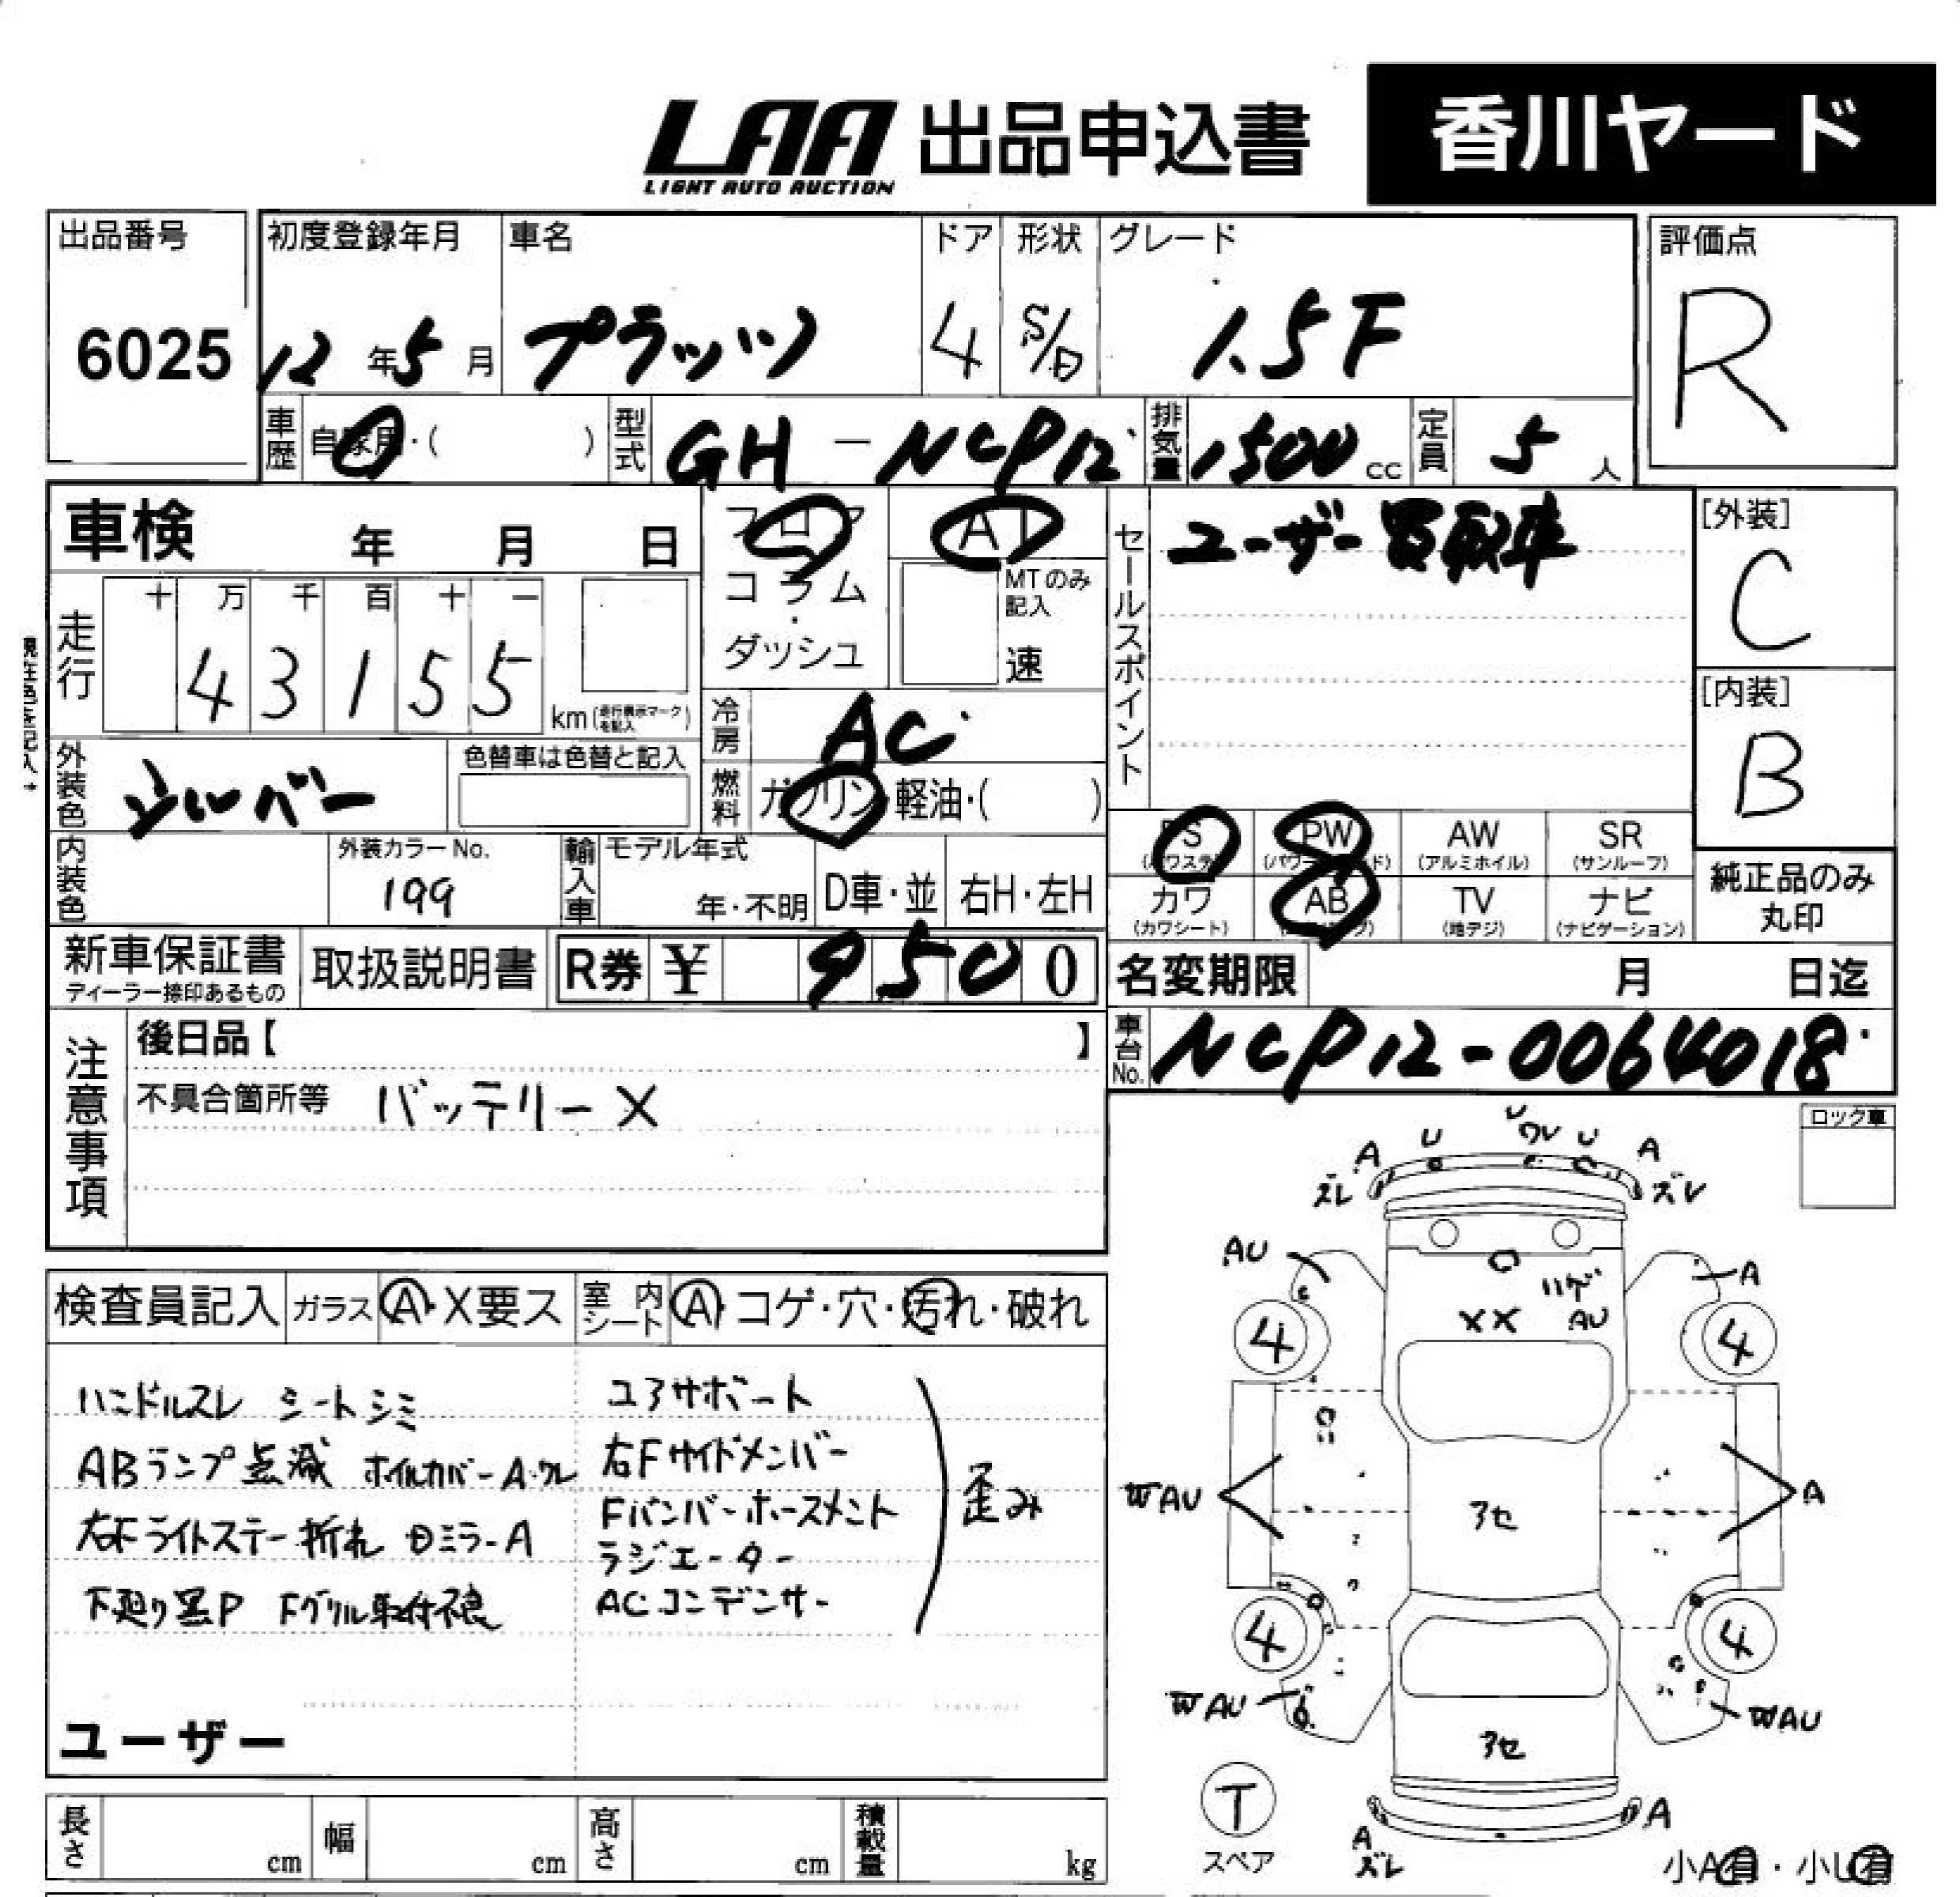 LAA 出品申込書 香川ヤード
LIGHT AUTO AUCTION
出品番号 初度登録年月 車名 ドア 形状 グレード 評価点
6025 12年5月 プラッツ 4 S/D 1.5F R
車歴 自家用・( ) 型式 GH-NCP12 排気量 1500cc 定員 5人
車検 年 月 日
フロア AT
コラム・ダッシュ
MTのみ記入
速
走行
十 万 千 百 十 一
4 3 1 5 5 km(走行表示マークを記入)
冷房 AC
燃料 ガソリン・軽油・( )
外装色 シルバー
色替車は色替と記入
内装色
外装カラーNo.
199
輸入車 モデル年式 年・不明 D車・並 右H・左H
セールスポイント
ユーザー買取車
[外装]
C
[内装]
B
PS PW AW SR
(パワステ) (パワーウインド) (アルミホイル) (サンルーフ)
カワ AB TV ナビ
(カワシート) (エアバッグ) (地デジ) (ナビゲーション)
純正品のみ
丸印
新車保証書 取扱説明書 R券 ¥ 9500
ディーラー捺印あるもの
名変期限 月 日迄
車台No. NCP12-0064018
注意事項
後日品【 】
不具合箇所等 バッテリーX
ロック車
検査員記入 ガラス A・X要ス 室内シート A コゲ・穴・汚れ・破れ
ハンドルスレ シートシミ
ABランプ点滅 ホイルカバーA・ワレ
右Fライトステー折れ Dミラー A
下廻り黒P Fグリル取付不良
コアサポート
右Fサイドメンバー
Fバンパーホースメント
ラジエーター
ACコンデンサー
歪み
ユーザー
U
A U ワレ U A
ズレ ズレ
AU A
ハゲ
XX AU
4 4
WAU A
アセ
4 4
WAU WAU
アセ
T
スペア
A
A
ズレ
小A有・小U有
長さ cm 幅 cm 高さ cm 積載量 kg